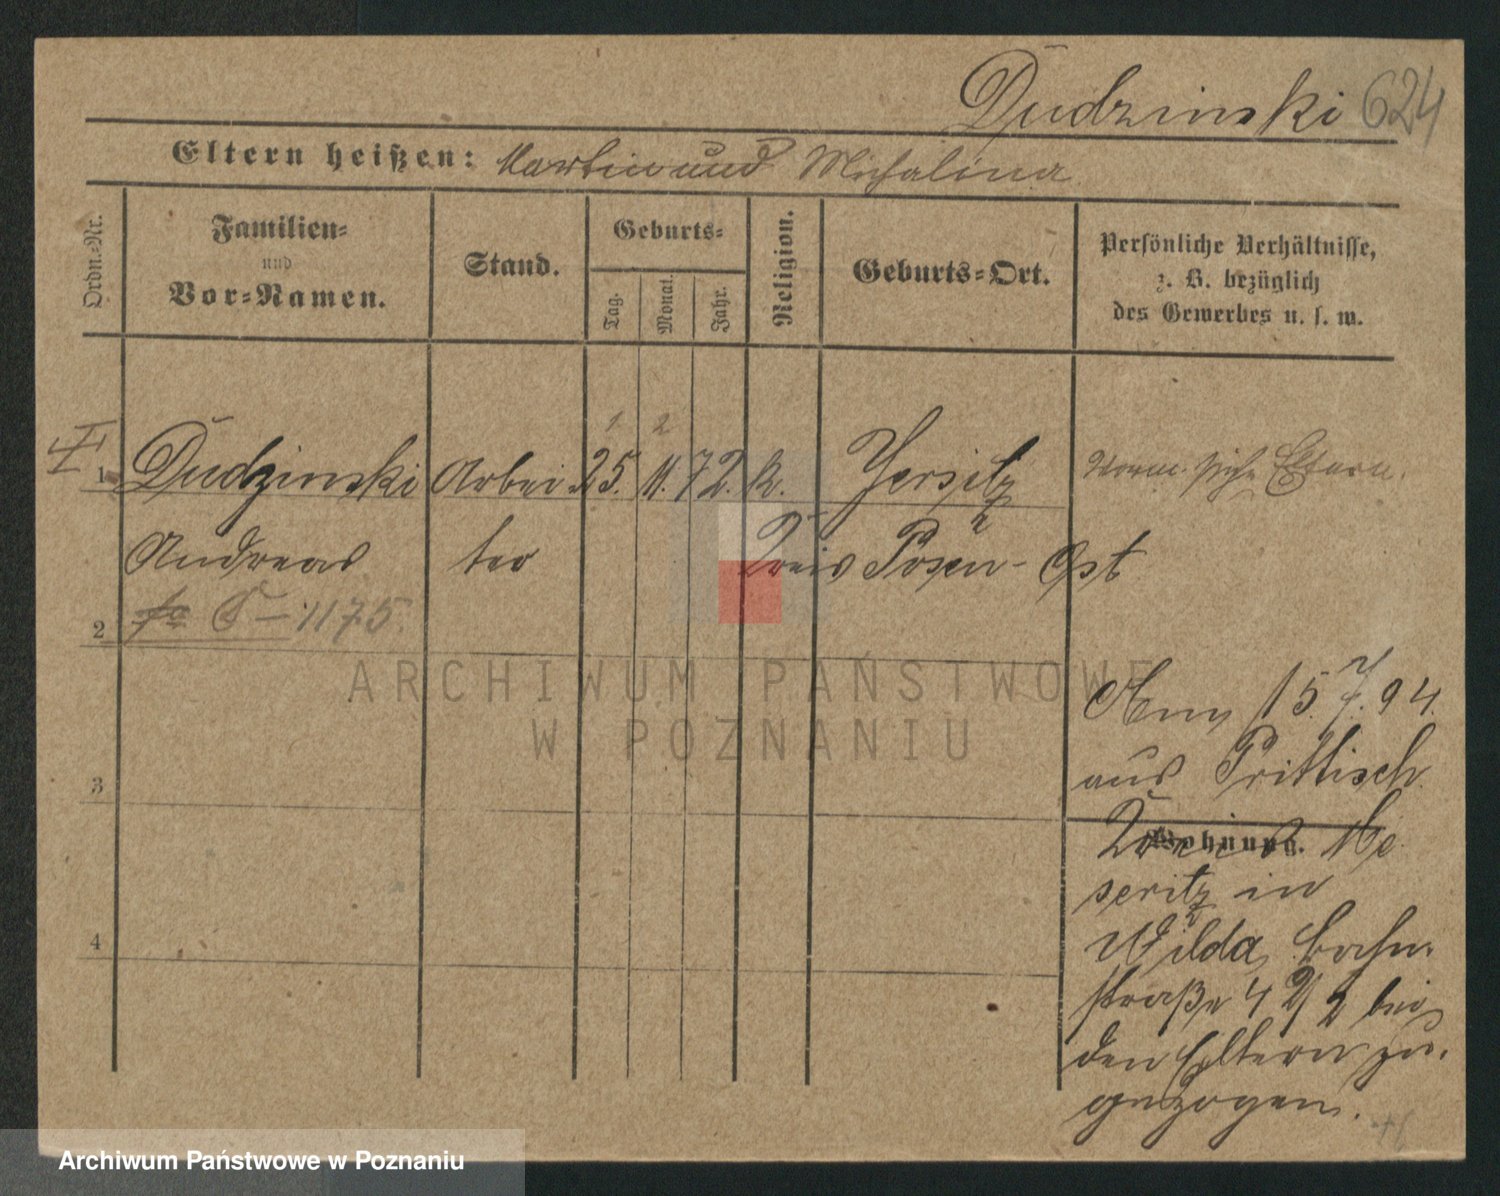 Dudzinski 624
Eltern heißen: Martin und Michalina
Ordn.-Nr.
Familien-
und
Vor-Namen.
Stand.
Geburts-
Tag.
Monat.
Jahr.
Religion.
Geburts-Ort.
Persönliche Verhältnisse,
z. B. bezüglich
des Gewerbes u. s. w.
1 2
1 Dudzinski Arbei 25. 11. 72. k. Jersitz siehe Eltern.
Andreas ter Kreis Posen-Ost
2 1175.
ARCHIWUM PAŃSTWOWE
W POZNANIU
Am 15. 7. 94.
aus Prittisch
3
Wohnung.
Kreis Me
seritz in
Wilda, Bahn-
4
straße 4 bei
den Eltern zu-
gezogen.
Archiwum Państwowe w Poznaniu